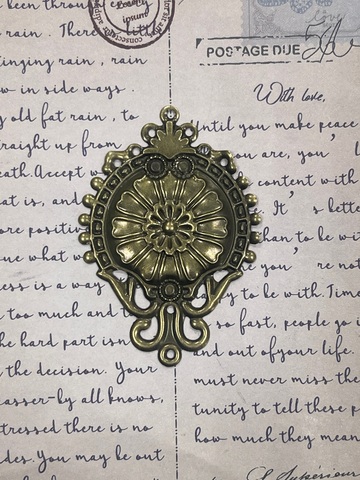 been throu
rain. There's little
inging rain, rain
w in side ways.
g old fat rain, to
raight up from
eath. Accept w
at is, and
ore positiv
ue what w
ess is a way
too much and t
he hard part isn
the decision. Your
asser-by all knows,
tressed there is no
des. You may be out
ipsum
consectetur
POSTAGE DUE
Love
With love,
Until you make peace
you are, you'l
content with
. It's bette
than to be wi
you're not
to be with. Time
so fast, people go i
and out of your life.
must never miss the
tunity to tell these p
how much they mean
Supérieur